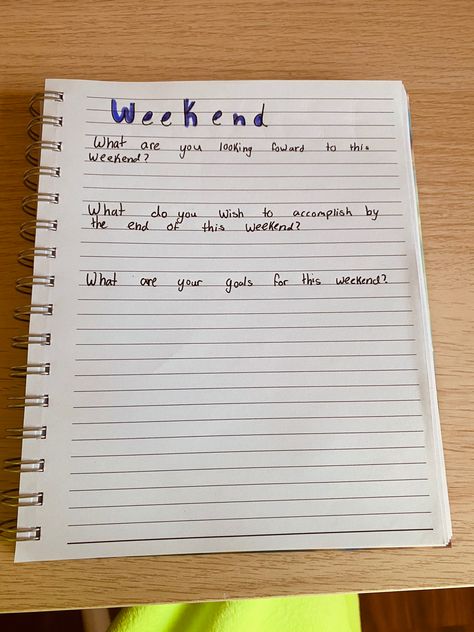 Weekend
What are you looking foward to this
weekend?
What do you wish to accomplish by
the end of this weekend?
What are your goals for this weekend?